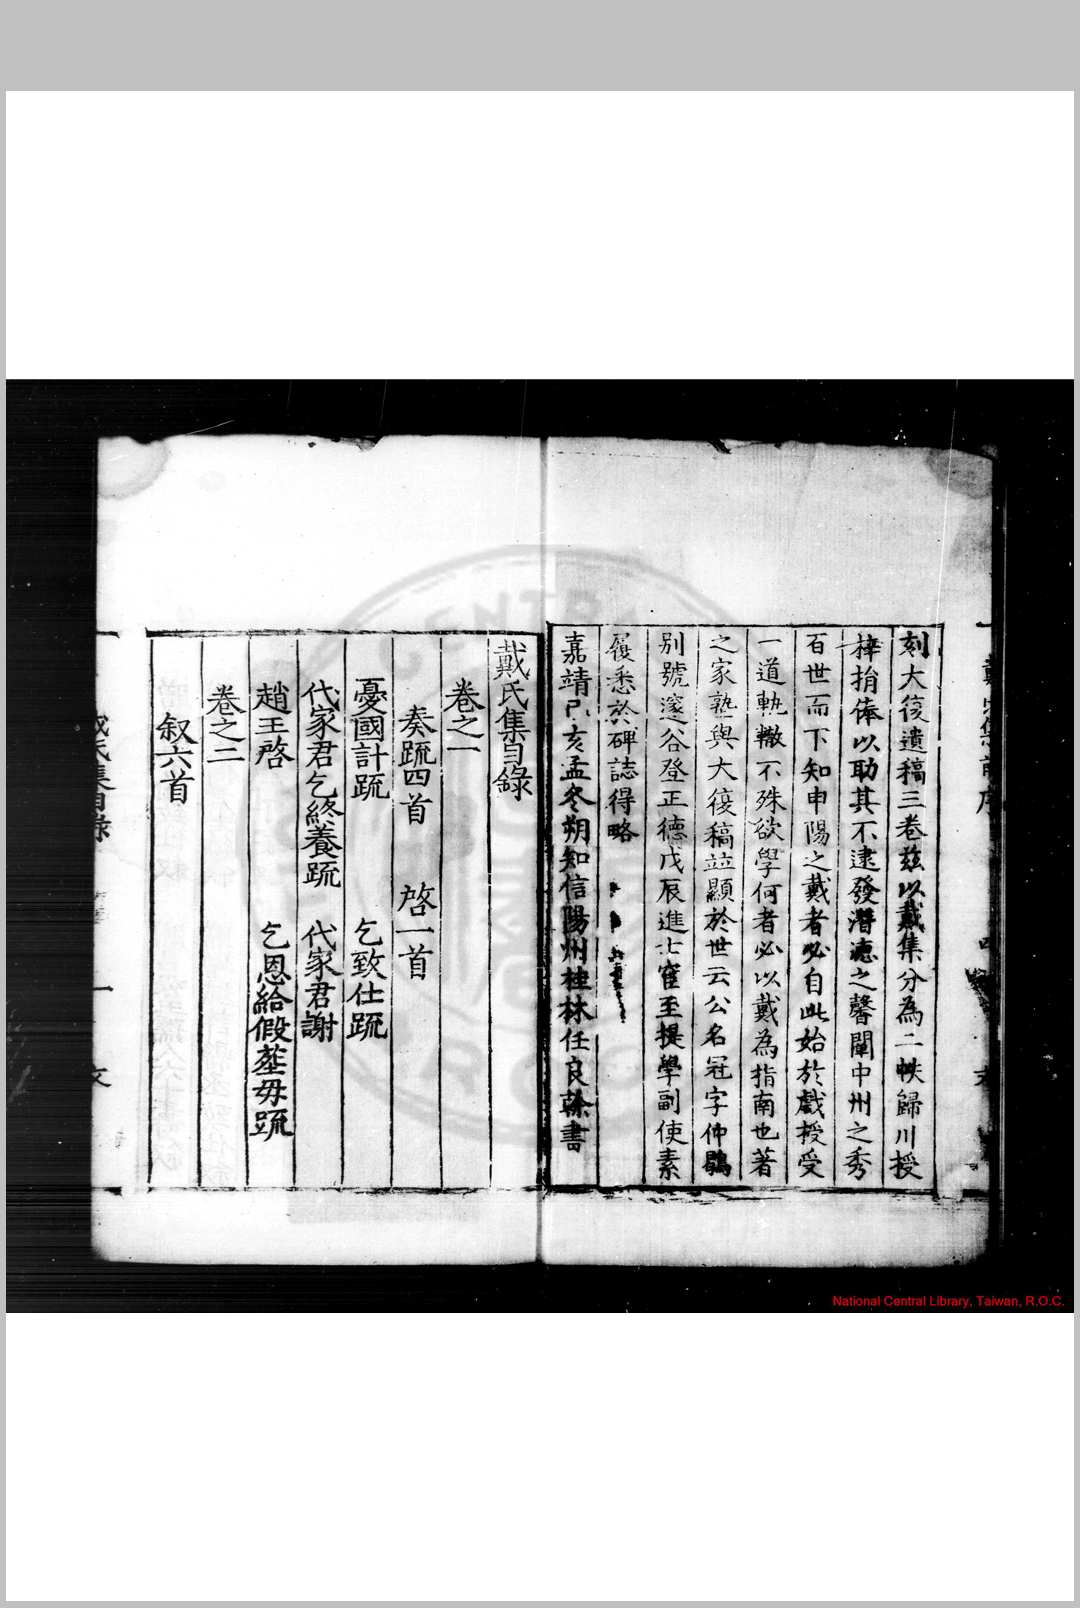 刻大復遺稿三卷茲以戴集分為一帙歸川授
梓捐俸以助其不逮發潛德之馨闡中州之秀
百世而下知申陽之戴者必自此始於戲授受
一道軌轍不殊欲學何者必以戴為指南也著
之家塾與大復稿並顯於世云公名冠字仲鶡
别號邃谷登正德戊辰進士官至提學副使素
履悉於碑誌得略
嘉靖己亥孟冬朔知信陽州桂林任良榦書
戴氏集目錄
卷之一
奏疏四首 啓一首
憂國計疏 乞致仕疏
代家君乞終養疏 代家君謝
趙王啓 乞恩給假塟毋疏
卷之二
叙六首
戴氏集目錄 一 文
National Central Library, Taiwan, R.O.C.